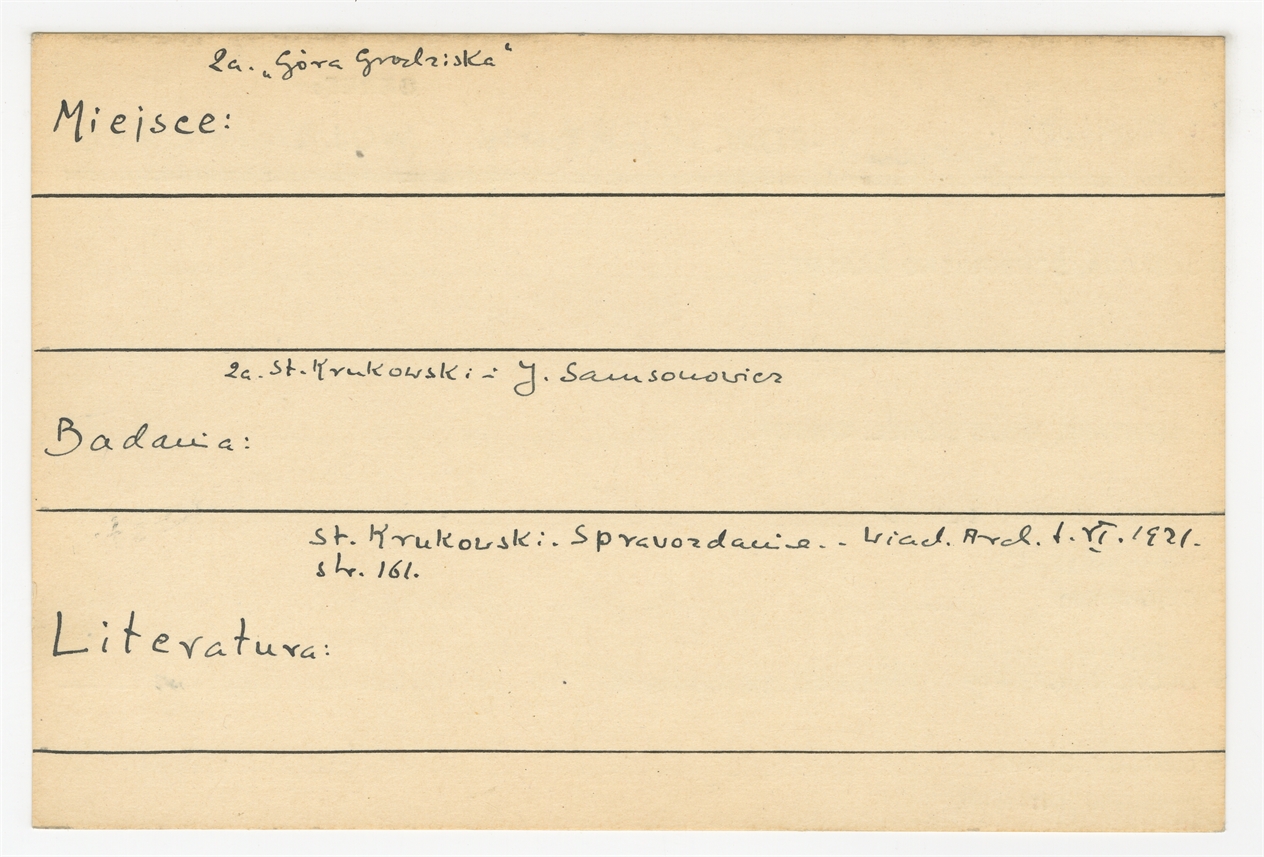 2a. „Góra Grodziska“
Miejsce:
2a. St. Krukowski i J. Samsonowicz
Badania:
St. Krukowski. Sprawozdanie. - Wiad. Arch. t. VI. 1921.
str. 161.
Literatura: